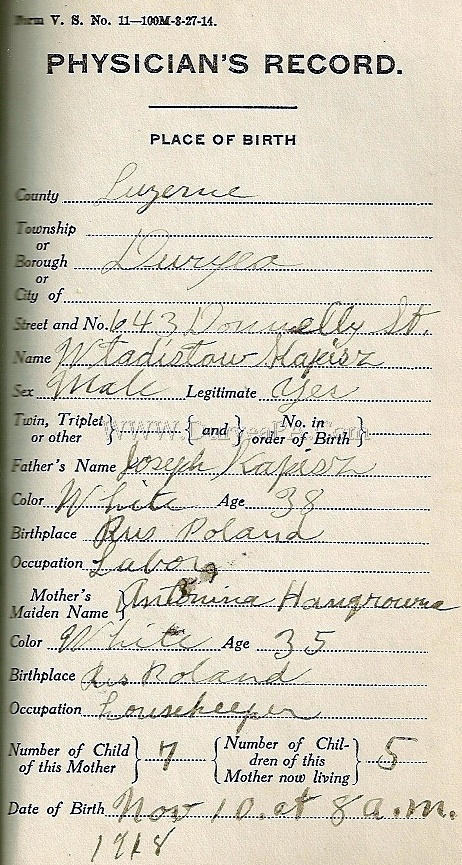 Form V. S. No. 11—100M-3-27-14.
PHYSICIAN'S RECORD.
PLACE OF BIRTH
County Luzerne
Township
or
Borough Duryea
or
City of
Street and No. 643 Donnelly St.
Name Wladislaw Kapisz
Sex Male Legitimate Yes
Twin, Triplet or other } { and } No. in order of Birth }
www.DuryeaPA.com
Father's Name Joseph Kapisz
Color White Age 38
Birthplace Rus Poland
Occupation Labor
Mother's Maiden Name } Antonina
Color White Age 35
Birthplace Rus Poland
Occupation Housekeeper
Number of Child of this Mother } 7 { Number of Children of this Mother now living } 5
Date of Birth Nov 10. at 8 a.m.
1918